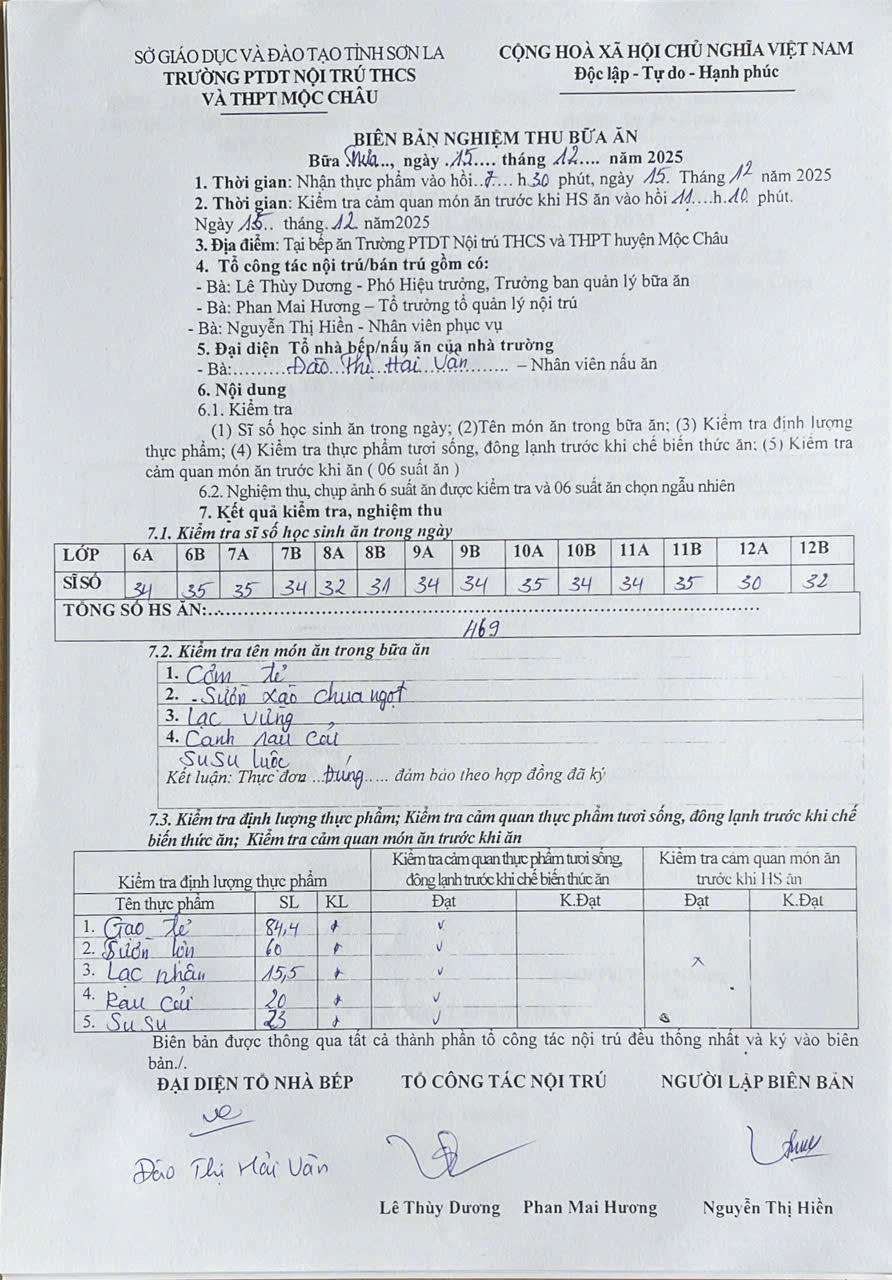 SỞ GIÁO DỤC VÀ ĐÀO TẠO TỈNH SƠN LA
TRƯỜNG PTDT NỘI TRÚ THCS
VÀ THPT MỘC CHÂU
CỘNG HOÀ XÃ HỘI CHỦ NGHĨA VIỆT NAM
Độc lập - Tự do - Hạnh phúc
BIÊN BẢN NGHIỆM THU BỮA ĂN
Bữa trưa.., ngày .15.... tháng .12.... năm 2025
1. Thời gian: Nhận thực phẩm vào hồi..7.... h.30 phút, ngày 15. Tháng 12 năm 2025
2. Thời gian: Kiểm tra cảm quan món ăn trước khi HS ăn vào hồi .11....h.10. phút.
Ngày 15.. tháng.12. năm2025
3. Địa điểm: Tại bếp ăn Trường PTDT Nội trú THCS và THPT huyện Mộc Châu
4. Tổ công tác nội trú/bán trú gồm có:
- Bà: Lê Thùy Dương - Phó Hiệu trưởng, Trưởng ban quản lý bữa ăn
- Bà: Phan Mai Hương – Tổ trưởng tổ quản lý nội trú
- Bà: Nguyễn Thị Hiền - Nhân viên phục vụ
5. Đại diện Tổ nhà bếp/nấu ăn của nhà trường
- Bà:.........Đào...Thị...Hải..Vân......... – Nhân viên nấu ăn
6. Nội dung
6.1. Kiểm tra
(1) Sĩ số học sinh ăn trong ngày; (2)Tên món ăn trong bữa ăn; (3) Kiểm tra định lượng
thực phẩm; (4) Kiểm tra thực phẩm tươi sống, đông lạnh trước khi chế biến thức ăn; (5) Kiểm tra
cảm quan món ăn trước khi ăn ( 06 suất ăn )
6.2. Nghiệm thu, chụp ảnh 6 suất ăn được kiểm tra và 06 suất ăn chọn ngẫu nhiên
7. Kết quả kiểm tra, nghiệm thu
7.1. Kiểm tra sĩ số học sinh ăn trong ngày
LỚP 6A 6B 7A 7B 8A 8B 9A 9B 10A 10B 11A 11B 12A 12B
SĨ SỐ 34 35 35 34 32 31 34 34 35 34 34 35 30 32
TỔNG SỐ HS ĂN:..............................
469
7.2. Kiểm tra tên món ăn trong bữa ăn
1. Cơm tẻ
2. - Sườn xào chua ngọt
3. Lạc vừng
4. Canh rau cải
SuSu luộc
Kết luận: Thực đơn ...Đúng..... đảm bảo theo hợp đồng đã ký
7.3. Kiểm tra định lượng thực phẩm; Kiểm tra cảm quan thực phẩm tươi sống, đông lạnh trước khi chế
biến thức ăn; Kiểm tra cảm quan món ăn trước khi ăn
Kiểm tra định lượng thực phẩm
Kiểm tra cảm quan thực phẩm tươi sống,
đông lạnh trước khi chế biến thức ăn
Kiểm tra cảm quan món ăn
trước khi HS ăn
Tên thực phẩm SL KL Đạt K.Đạt Đạt K.Đạt
1. Gạo tẻ 84,4 + v
2. Sườn lợn 60 + v
3. Lạc nhân 15,5 + v
4. Rau cải 20 + v
5. SuSu 23 + v
Biên bản được thông qua tất cả thành phần tổ công tác nội trú đều thống nhất và ký vào biên
bản./.
ĐẠI DIỆN TỔ NHÀ BẾP TỔ CÔNG TÁC NỘI TRÚ NGƯỜI LẬP BIÊN BẢN
Đào Thị Hải Vân
Lê Thùy Dương Phan Mai Hương Nguyễn Thị Hiền